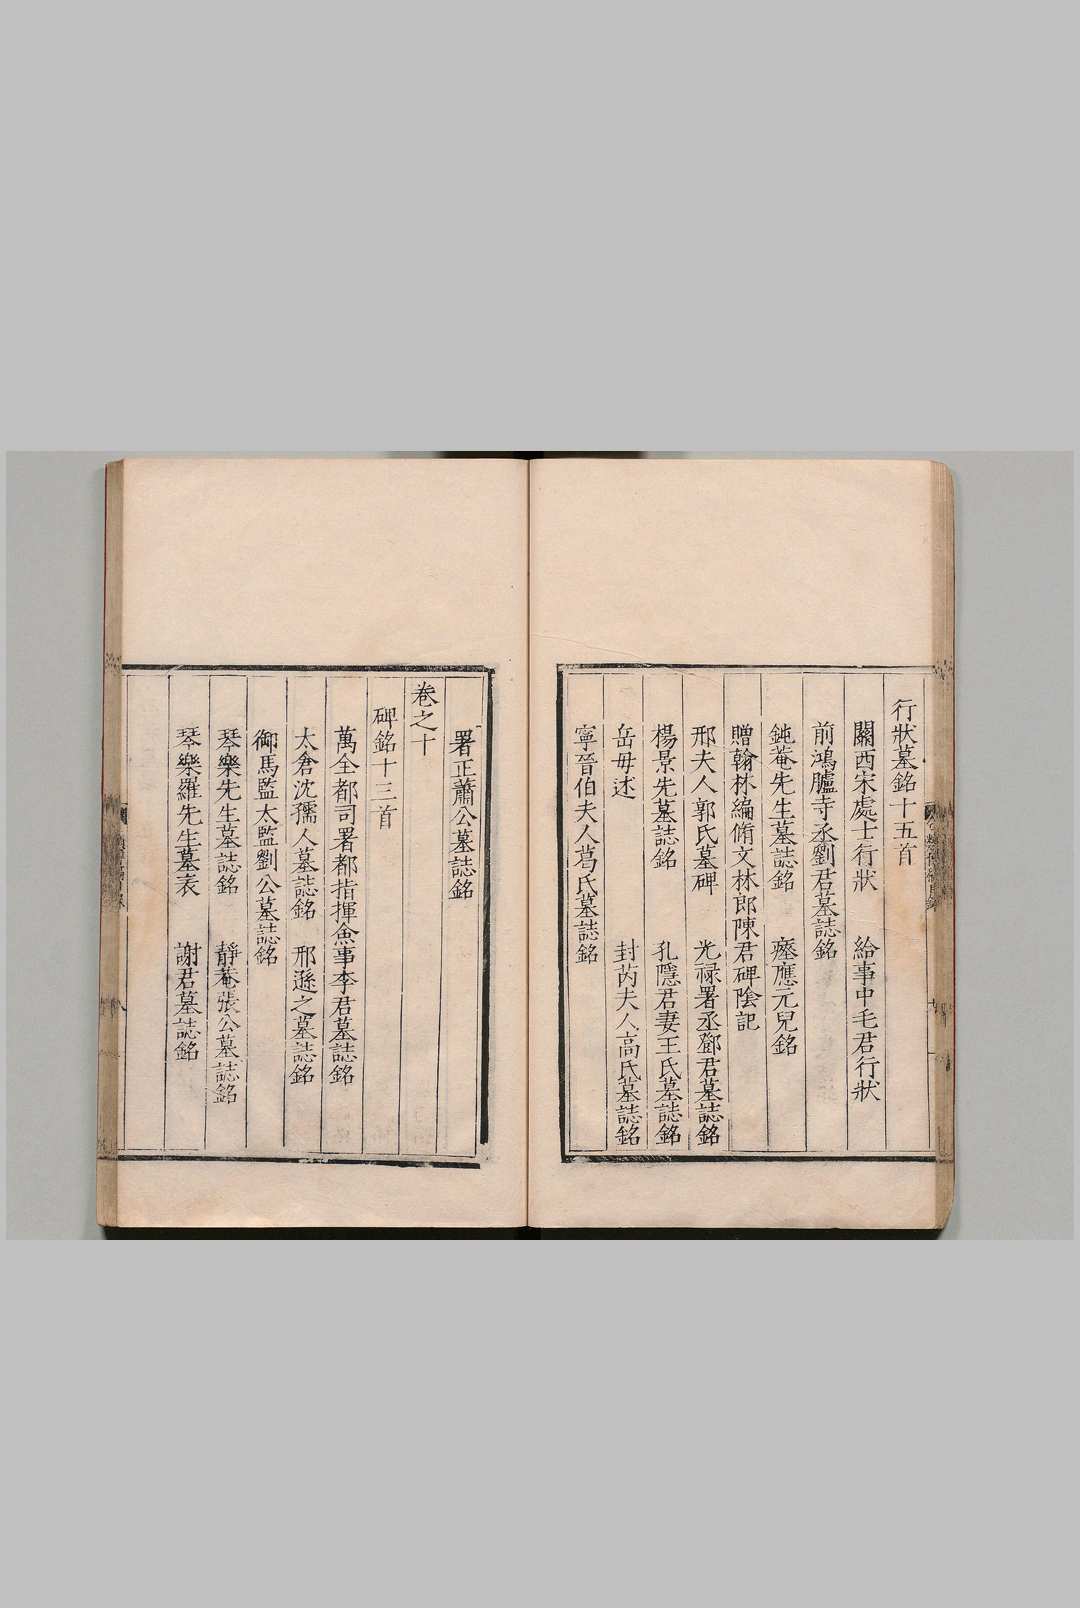 行狀墓銘十五首
關西宋處士行狀　給事中毛君行狀
前鴻臚寺丞劉君墓誌銘
鈍菴先生墓誌銘　瘞應元兒銘
贈翰林編脩文林郎陳君碑陰記
邢夫人郭氏墓碑　光祿署丞鄧君墓誌銘
楊景先墓誌銘　孔隱君妻王氏墓誌銘
岳毋述　封芮夫人高氏墓誌銘
寧晉伯夫人葛氏墓誌銘
署正蕭公墓誌銘
卷之十
碑銘十三首
萬全都司署都指揮僉事李君墓誌銘
太倉沈孺人墓誌銘　邢遜之墓誌銘
御馬監太監劉公墓誌銘
琴樂先生墓誌銘　靜菴張公墓誌銘
琴樂羅先生墓表　謝君墓誌銘